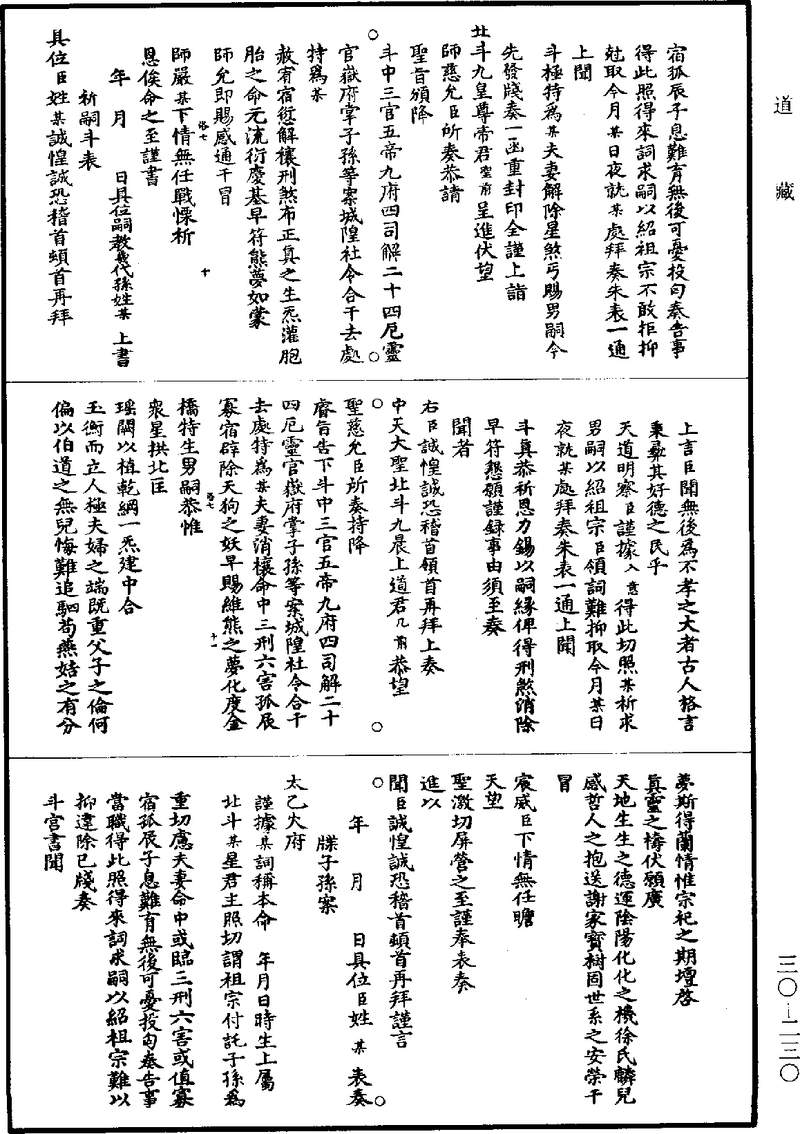 道藏
三〇—二三〇
宿孤辰子息難育無後可憂投匄奏告事
得此照得來詞求嗣以紹祖宗不敢拒抑
尅取今月某日夜就某處拜奏朱表一通
上聞
斗極特爲某夫妻解除星煞丐賜男嗣今
先發牋奏一函重封印全謹上詣
北斗九皇尊帝君聖前呈進伏望
師慈允臣所奏恭請
聖旨頒降
○斗中三官五帝九府四司解二十四厄靈○
官嶽府掌子孫等案城隍社令合干去處
特爲某
赦宥宿愆解禳刑煞布正真之生炁灌胞
胎之命元流衍慶基早符熊夢如蒙
師允即賜感通干冒
師嚴某下情無任戰慄祈
恩俟命之至謹書
年 月 日具位嗣教幾代孫姓某 上書
祈嗣斗表
具位臣姓某誠惶誠恐稽首頓首再拜
上言臣聞無後爲不孝之大者古人格言
秉彞其好德之民乎
天道明察臣謹據入意得此切照某祈求
男嗣以紹祖宗臣領詞難抑取今月某日
夜就某處拜奏朱表一通上聞
斗真恭祈恩力錫以嗣緣俾得刑煞消除
早符懇願謹録事由須至奏
聞者
右臣誠惶誠恐稽首頓首再拜上奏
中天大聖北斗九晨上道君几前恭望
○ ○
聖慈允臣所奏持降
睿旨告下斗中三官五帝九府四司解二十
四厄靈官嶽府掌子孫等案城隍社令合干
去處特爲某夫妻消禳命中三刑六害孤辰
寡宿辟除天狗之妖早賜維熊之夢化度金
橋特生男嗣恭惟
衆星拱北匡
瑶闕以植乾綱一炁建中合
玉衡而立人極夫婦之端既重父子之倫何
偏以伯道之無兒悔難追駟荀燕姞之有分
夢斯得蘭情惟宗祀之期壇啓
真靈之禱伏願廣
天地生生之德運陰陽化化之機徐氏麟兒
感哲人之抱送謝家寳樹固世系之安榮干
冒
宸威臣下情無任瞻
天望
聖激切屏營之至謹奉表奏
進以
聞臣誠惶誠恐稽首頓首再拜謹言
○年 月 日具位臣姓某 表奏○
牒子孫案
太乙大府
謹據某詞稱本命 年月日時生上屬
北斗某星君主照切謂祖宗付託子孫爲
重切慮夫妻命中或臨三刑六害或值寡
宿孤辰子息難育無後可憂投匄奏告事
當職得此照得來詞求嗣以紹祖宗難以
抑違除已牋奏
斗宮書聞